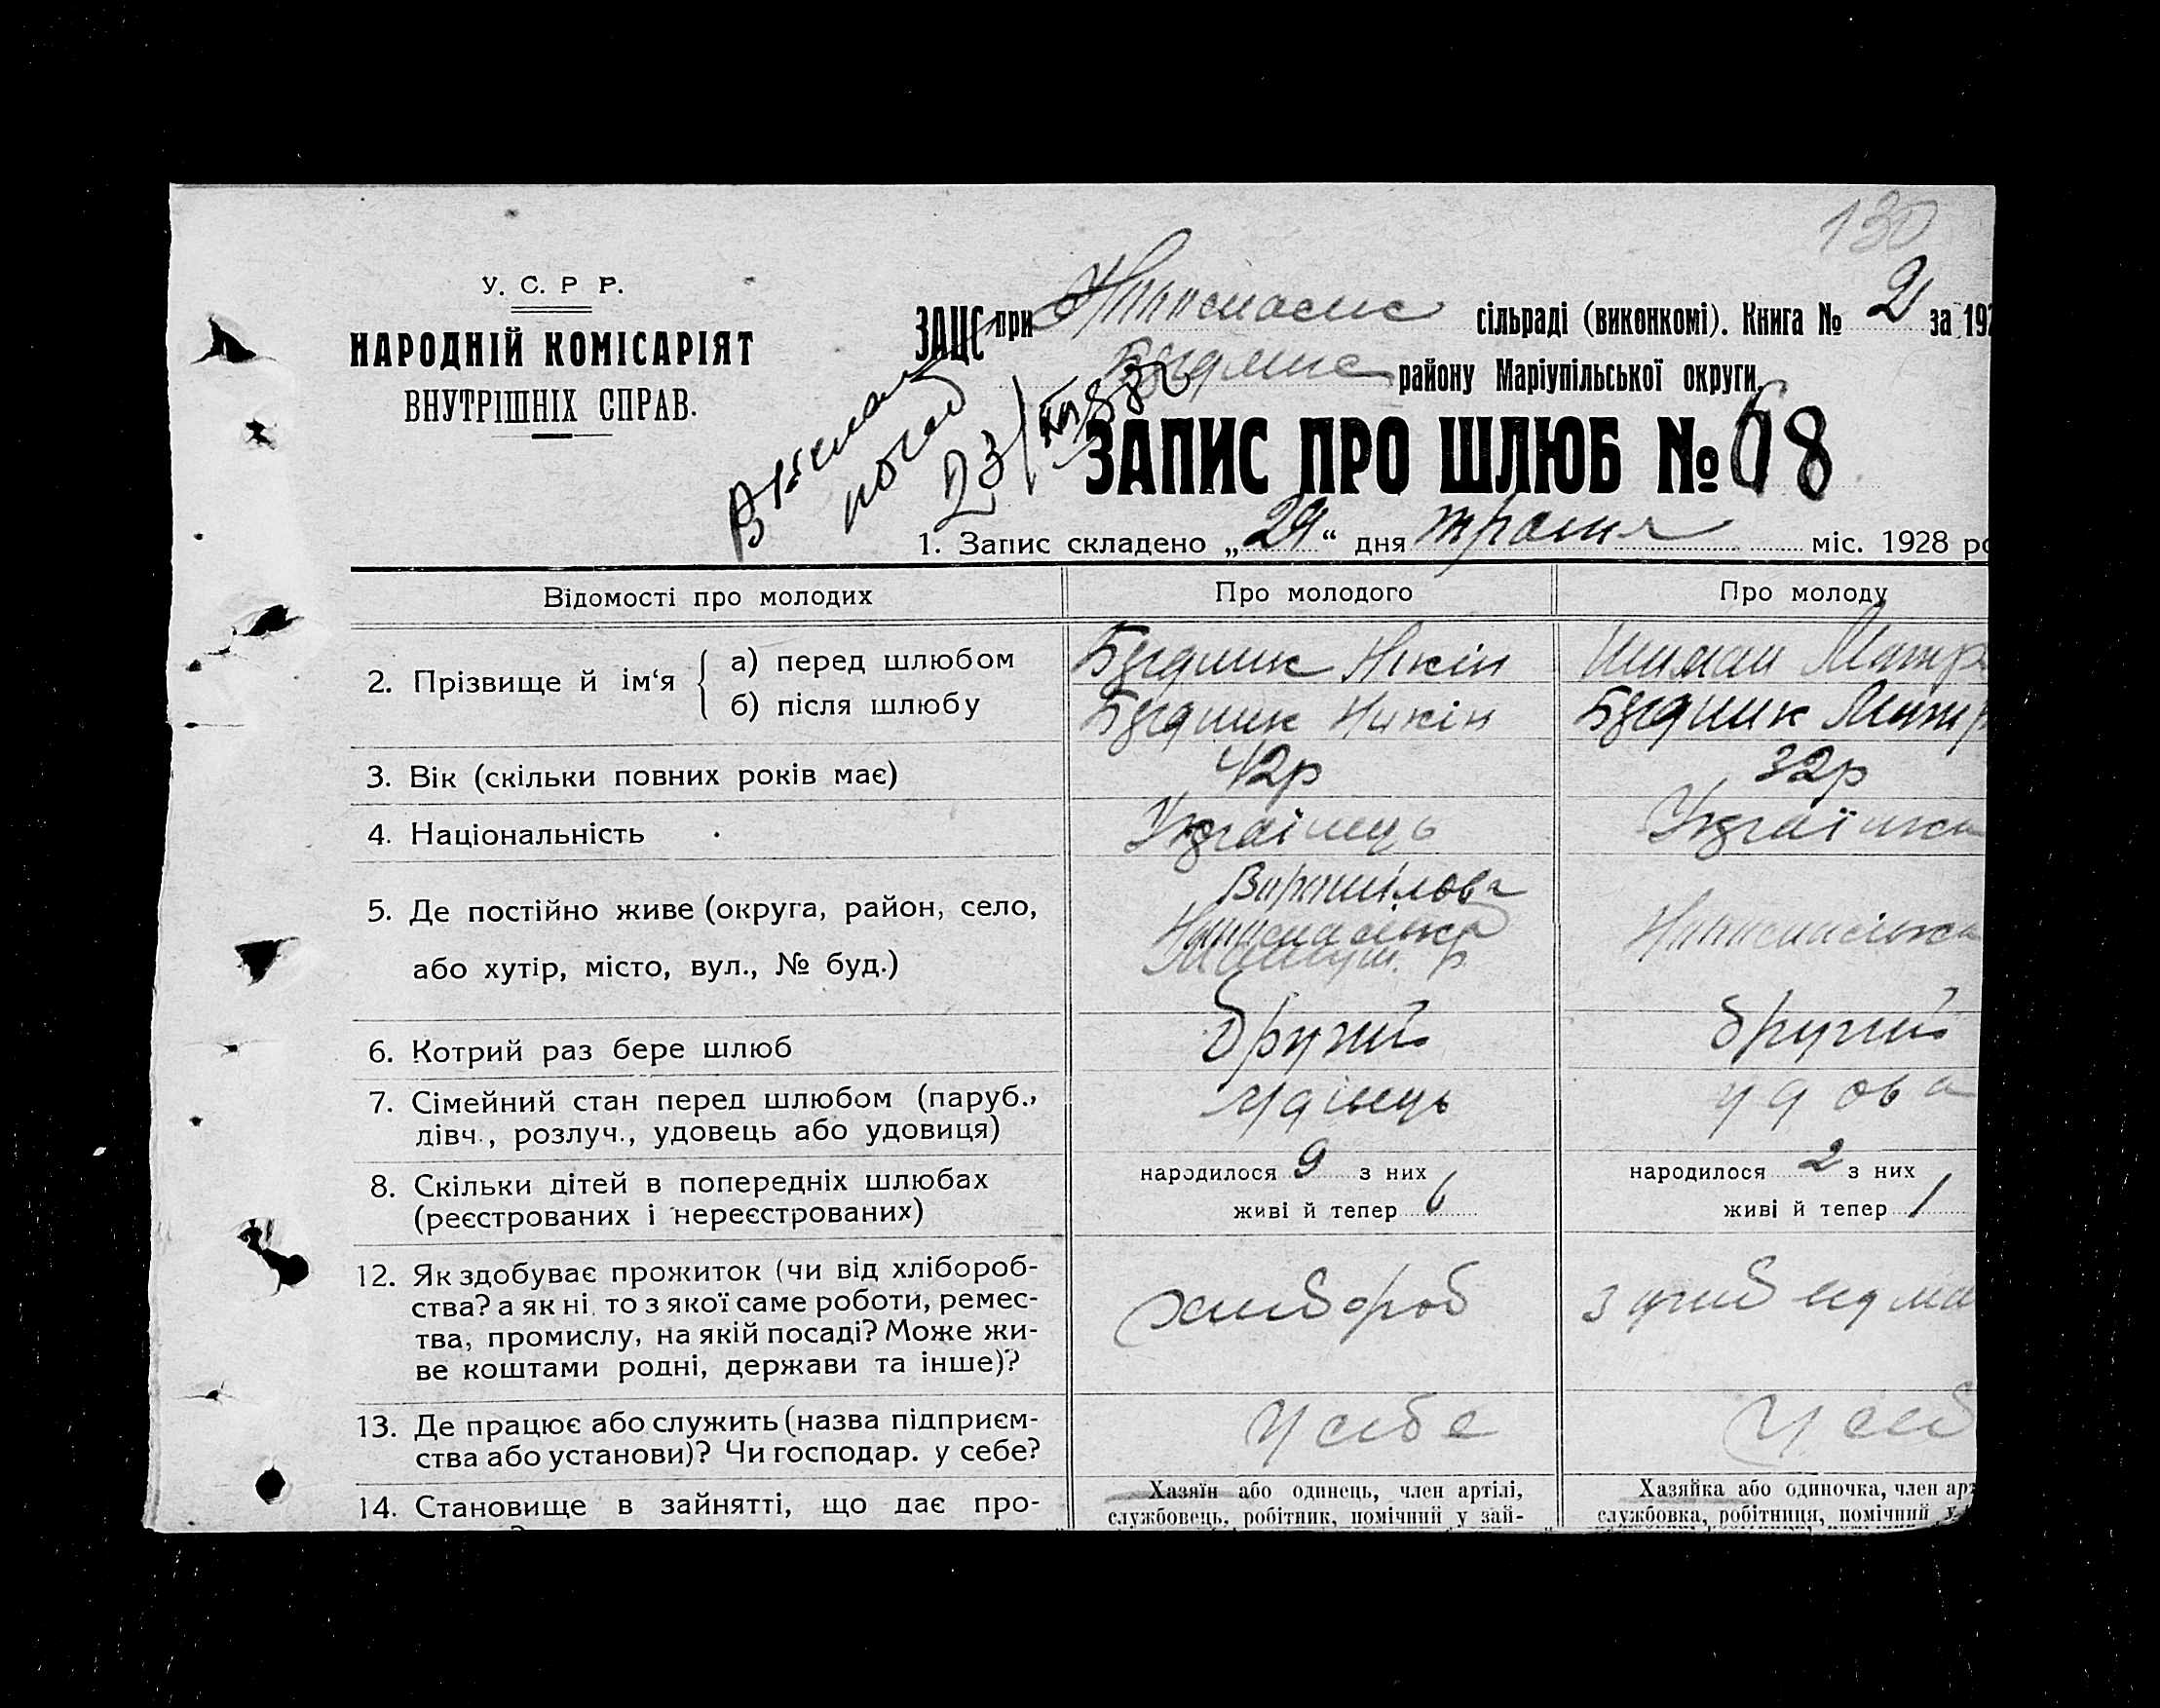 130
У. С. Р Р.
НАРОДНІЙ КОМІСАРІЯТ
ВНУТРІШНІХ СПРАВ.
ЗАЦС при сільраді (виконкомі). Книга № 2 за 192
району Маріупільської округи
23
ЗАПИС ПРО ШЛЮБ № 68
1. Запис складено „29“ дня травня міс. 1928 ро
Відомості про молодих Про молодого Про молоду
2. Прізвище й ім‘я
а) перед шлюбом Будник Нікін Шиман Матр
б) після шлюбу Будник Никін Будник Матр
3. Вік (скільки повних років має) 42р 32р
4. Національність Украінець Українка
5. Де постійно живе (округа, район, село,
або хутір, місто, вул., № буд.)
6. Котрий раз бере шлюб другий другий
7. Сімейний стан перед шлюбом (паруб.,
дівч., розлуч., удовець або удовиця) удівець удова
8. Скільки дітей в попередніх шлюбах
(реєстрованих і нереєстрованих)
народилося 9 з них
живі й тепер 6
народилося 2 з них
живі й тепер 1
12. Як здобуває прожиток (чи від хлібороб-
ства? а як ні, то з якої саме роботи, ремес-
тва, промислу, на якій посаді? Може жи-
ве коштами родні, держави та інше)?
хлібороб
13. Де працює або служить (назва підприєм-
ства або установи)? Чи господар. у себе?
у себе у себ
14. Становище в зайнятті, що дає про-
Хазяїн або одинець, член артілі,
службовець, робітник, помічний у зай-
Хазяйка або одиночка, член арт
службовка, робітниця, помічний у